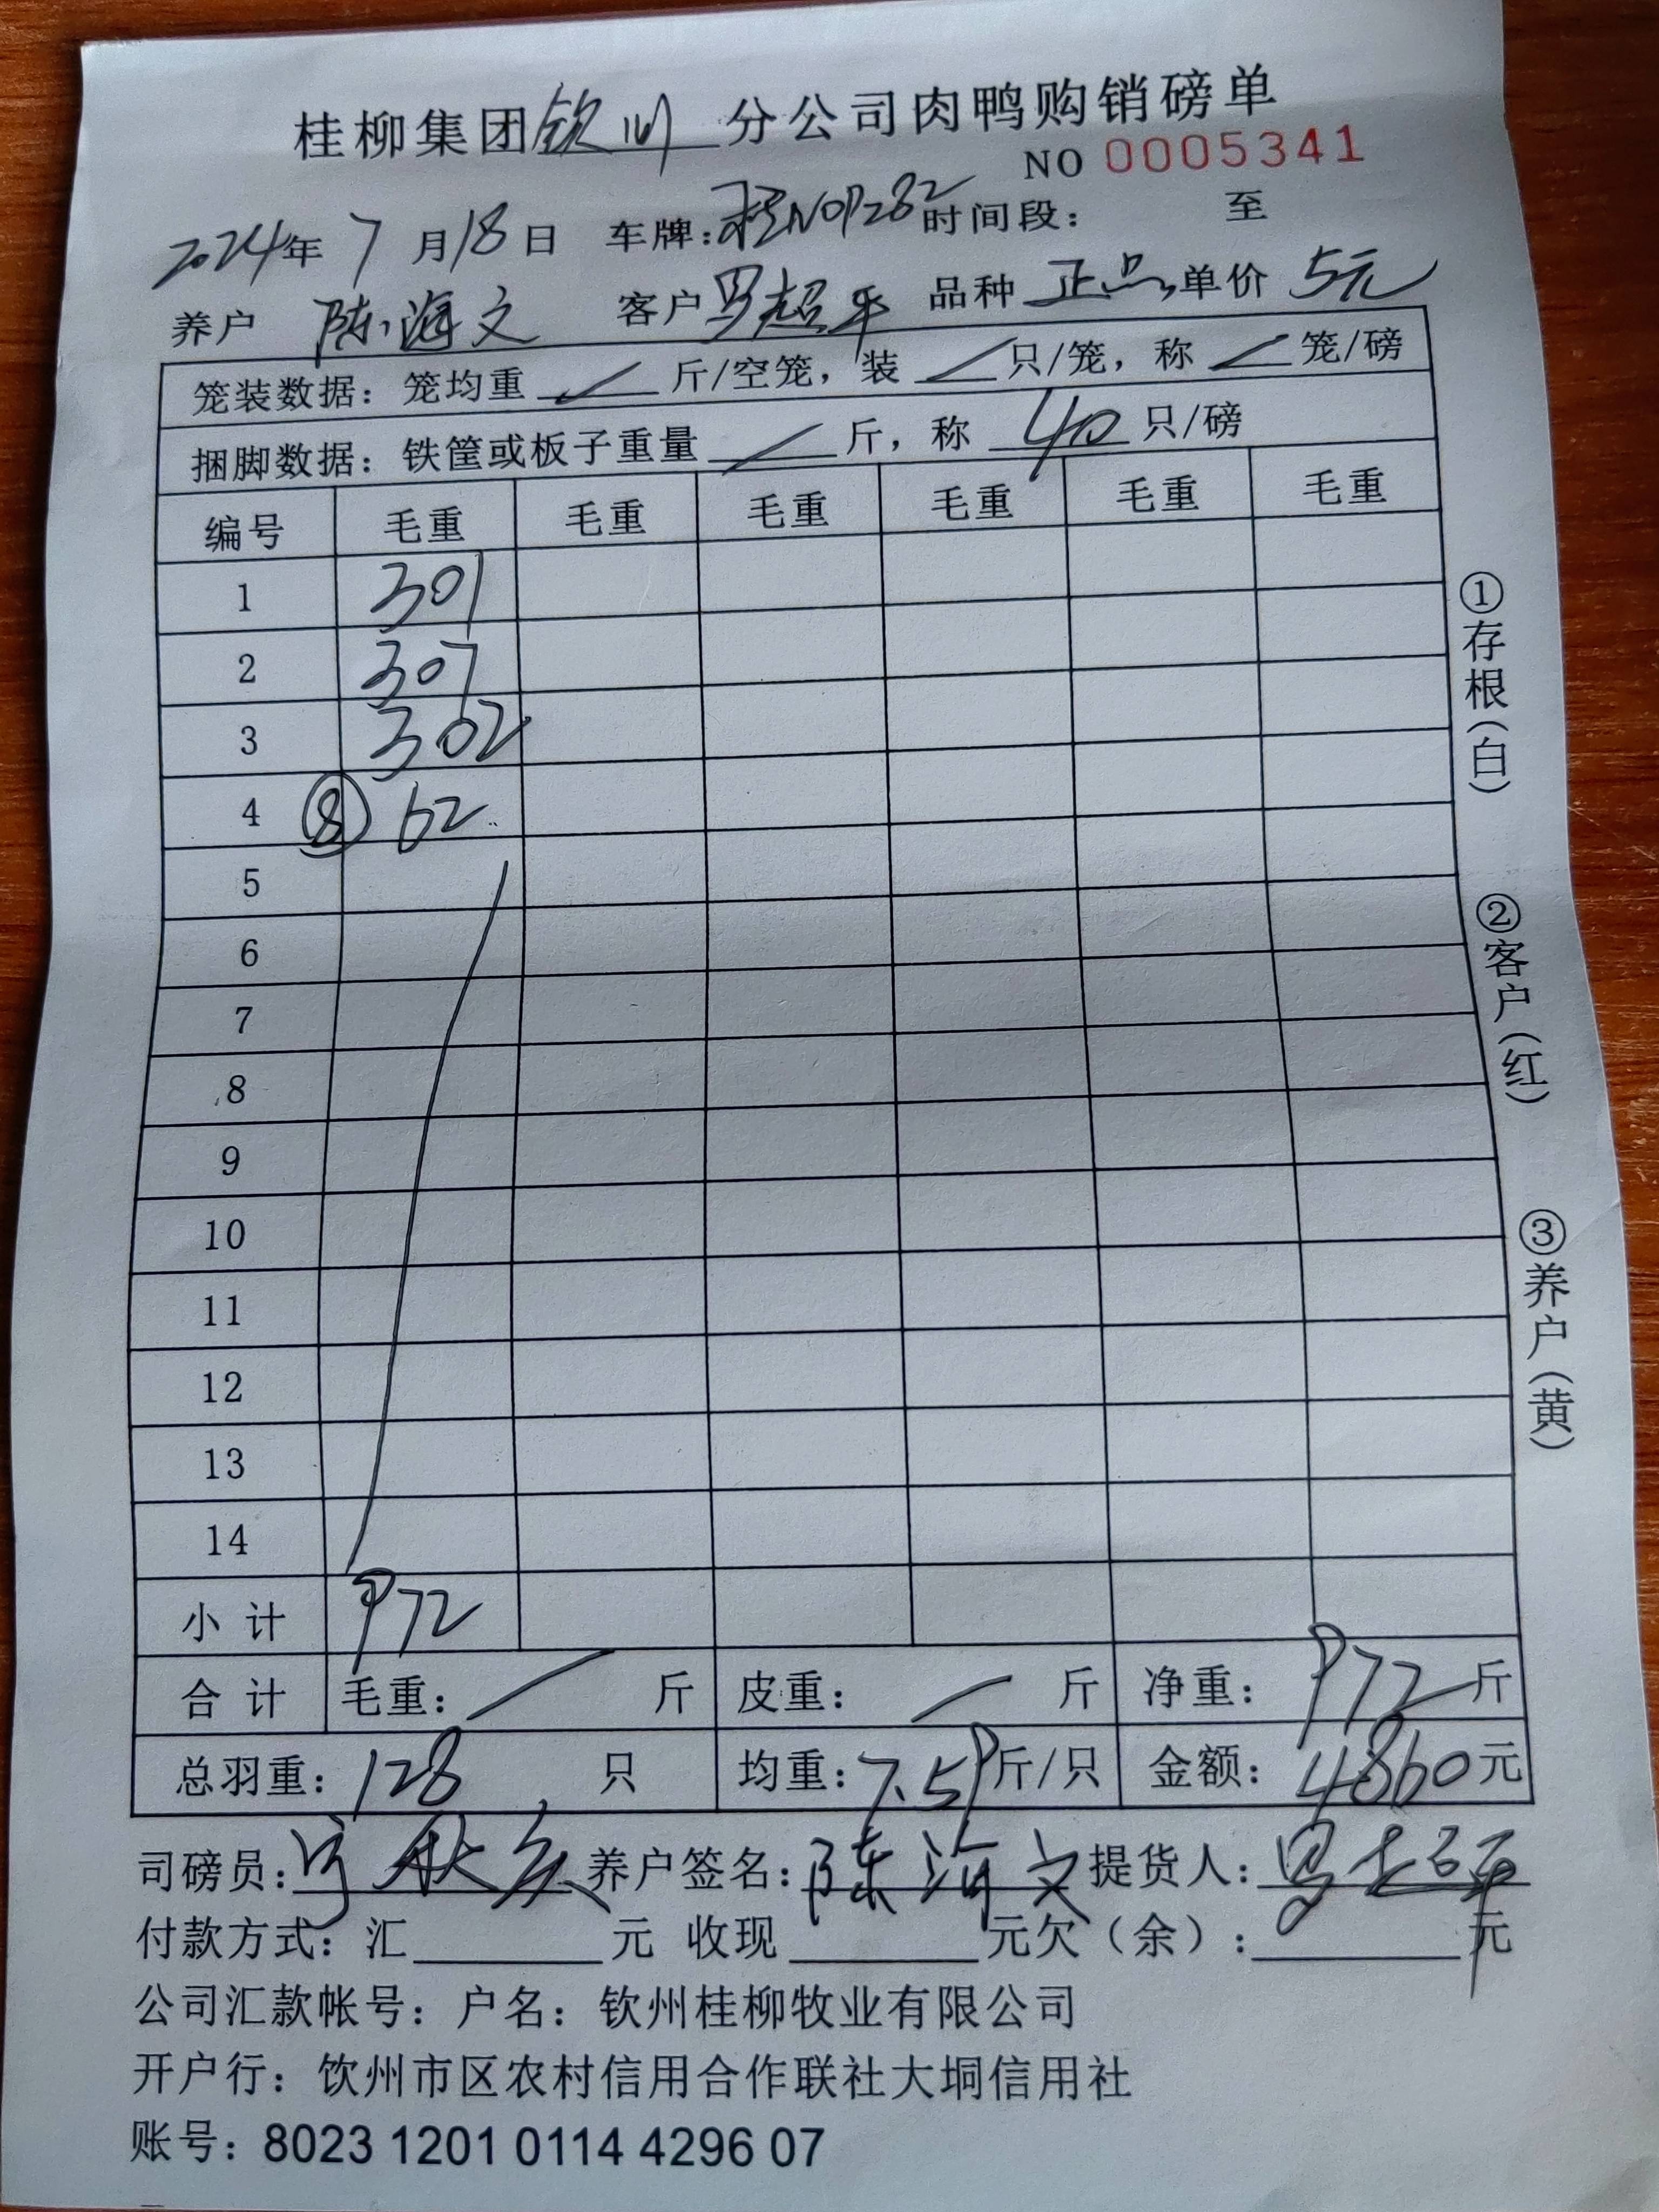 桂柳集团钦州分公司肉鸭购销磅单
NO 0005341
2024年7月18日 车牌:桂NOP282 时间段: 至
养户 陈海文 客户 罗超平 品种 正品 单价 5元
笼装数据: 笼均重 / 斤/空笼, 装 / 只/笼, 称 / 笼/磅
捆脚数据: 铁筐或板子重量 / 斤, 称 40 只/磅
编号 毛重 毛重 毛重 毛重 毛重 毛重
1 301
2 307
3 302
4 ⑧ 62
5
6
7
8
9
10
11
12
13
14
小计 972
合计 毛重: / 斤 皮重: / 斤 净重: 972斤
总羽重: 128 只 均重: 7.59斤/只 金额: 4860元
司磅员: 养户签名: 陈海文 提货人: 罗超平
付款方式: 汇 元 收现 元欠(余): 元
公司汇款帐号: 户名: 钦州桂柳牧业有限公司
开户行: 钦州市区农村信用合作联社大垌信用社
账号: 8023 1201 0114 4296 07
①存根(白)
②客户(红)
③养户(黄)